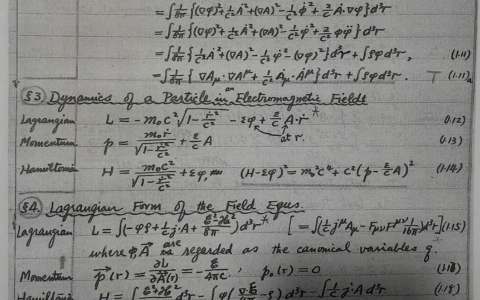 = ∫ 1/8π {(∇φ)² + 1/c² Ȧ² + (∇A)² − 1/c² φ̇² + 2/c Ȧ·∇φ} d³r
= ∫ 1/8π {(∇φ)² + 1/c² Ȧ² + (∇A)² − 1/c² φ̇² + 2/c² φ φ̈} d³r
= ∫ 1/8π {1/c² Ȧ² + (∇A)² − 1/c² φ̇² − (∇φ)²} d³r + ∫ρφ d³r, (1.11)
= ∫ 1/8π {∇Aμ·∇Aᵘ + 1/c² Ȧμ·Ȧᵘ} d³r + ∫ρφ d³r. (1.11)a
§3 Dynamics of a Particle in an Electromagnetic Field
Lagrangian L = −m₀c² √(1 − ṙ²/c²) − εφ + ε/c A·ṙ * (1.12)
Momentum p = m₀ṙ/√(1 − ṙ²/c²) + ε/c A at r. (1.13)
Hamiltonian H = m₀c²/√(1 − ṙ²/c²) + εφ, (H − εφ)² = m₀²c⁴ + c²(p − ε/c A)² (1.14)
§4. Lagrangian Form of the Field Equs.
Lagrangian L = ∫(−ρφ + 1/c j·A + (ℰ² − ℋ²)/8π) d³r * [= ∫(1/c jᵘAμ − FμνFᵘᵛ 1/16π) d³r] (1.15)
where φ, A⃗ are regarded as the canonical variables q.
Momentum p⃗(r) = ∂L/∂Ȧ⃗(r) = −ℰ/4πc, p₀(r) = 0 (1.18)
H = ∫ (ℰ² + ℋ²)/8π d³r − ∫φ(∇·ℰ/4π − ρ) d³r − ∫ 1/c j·A d³r (1.19)